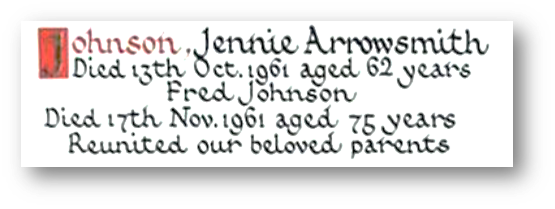 Johnson, Jennie Arrowsmith
Died 13th Oct. 1961 aged 62 years
Fred Johnson
Died 17th Nov. 1961 aged 75 years
Reunited our beloved parents